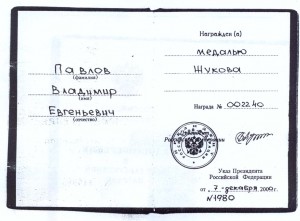 Павлов
(фамилия)
Владимир
(имя)
Евгеньевич
(отчество)
Награжден (а)
медалью
Жукова
Награда № 002240
Указ Президента
Российской Федерации
от 7 декабря 2000г.
№1980